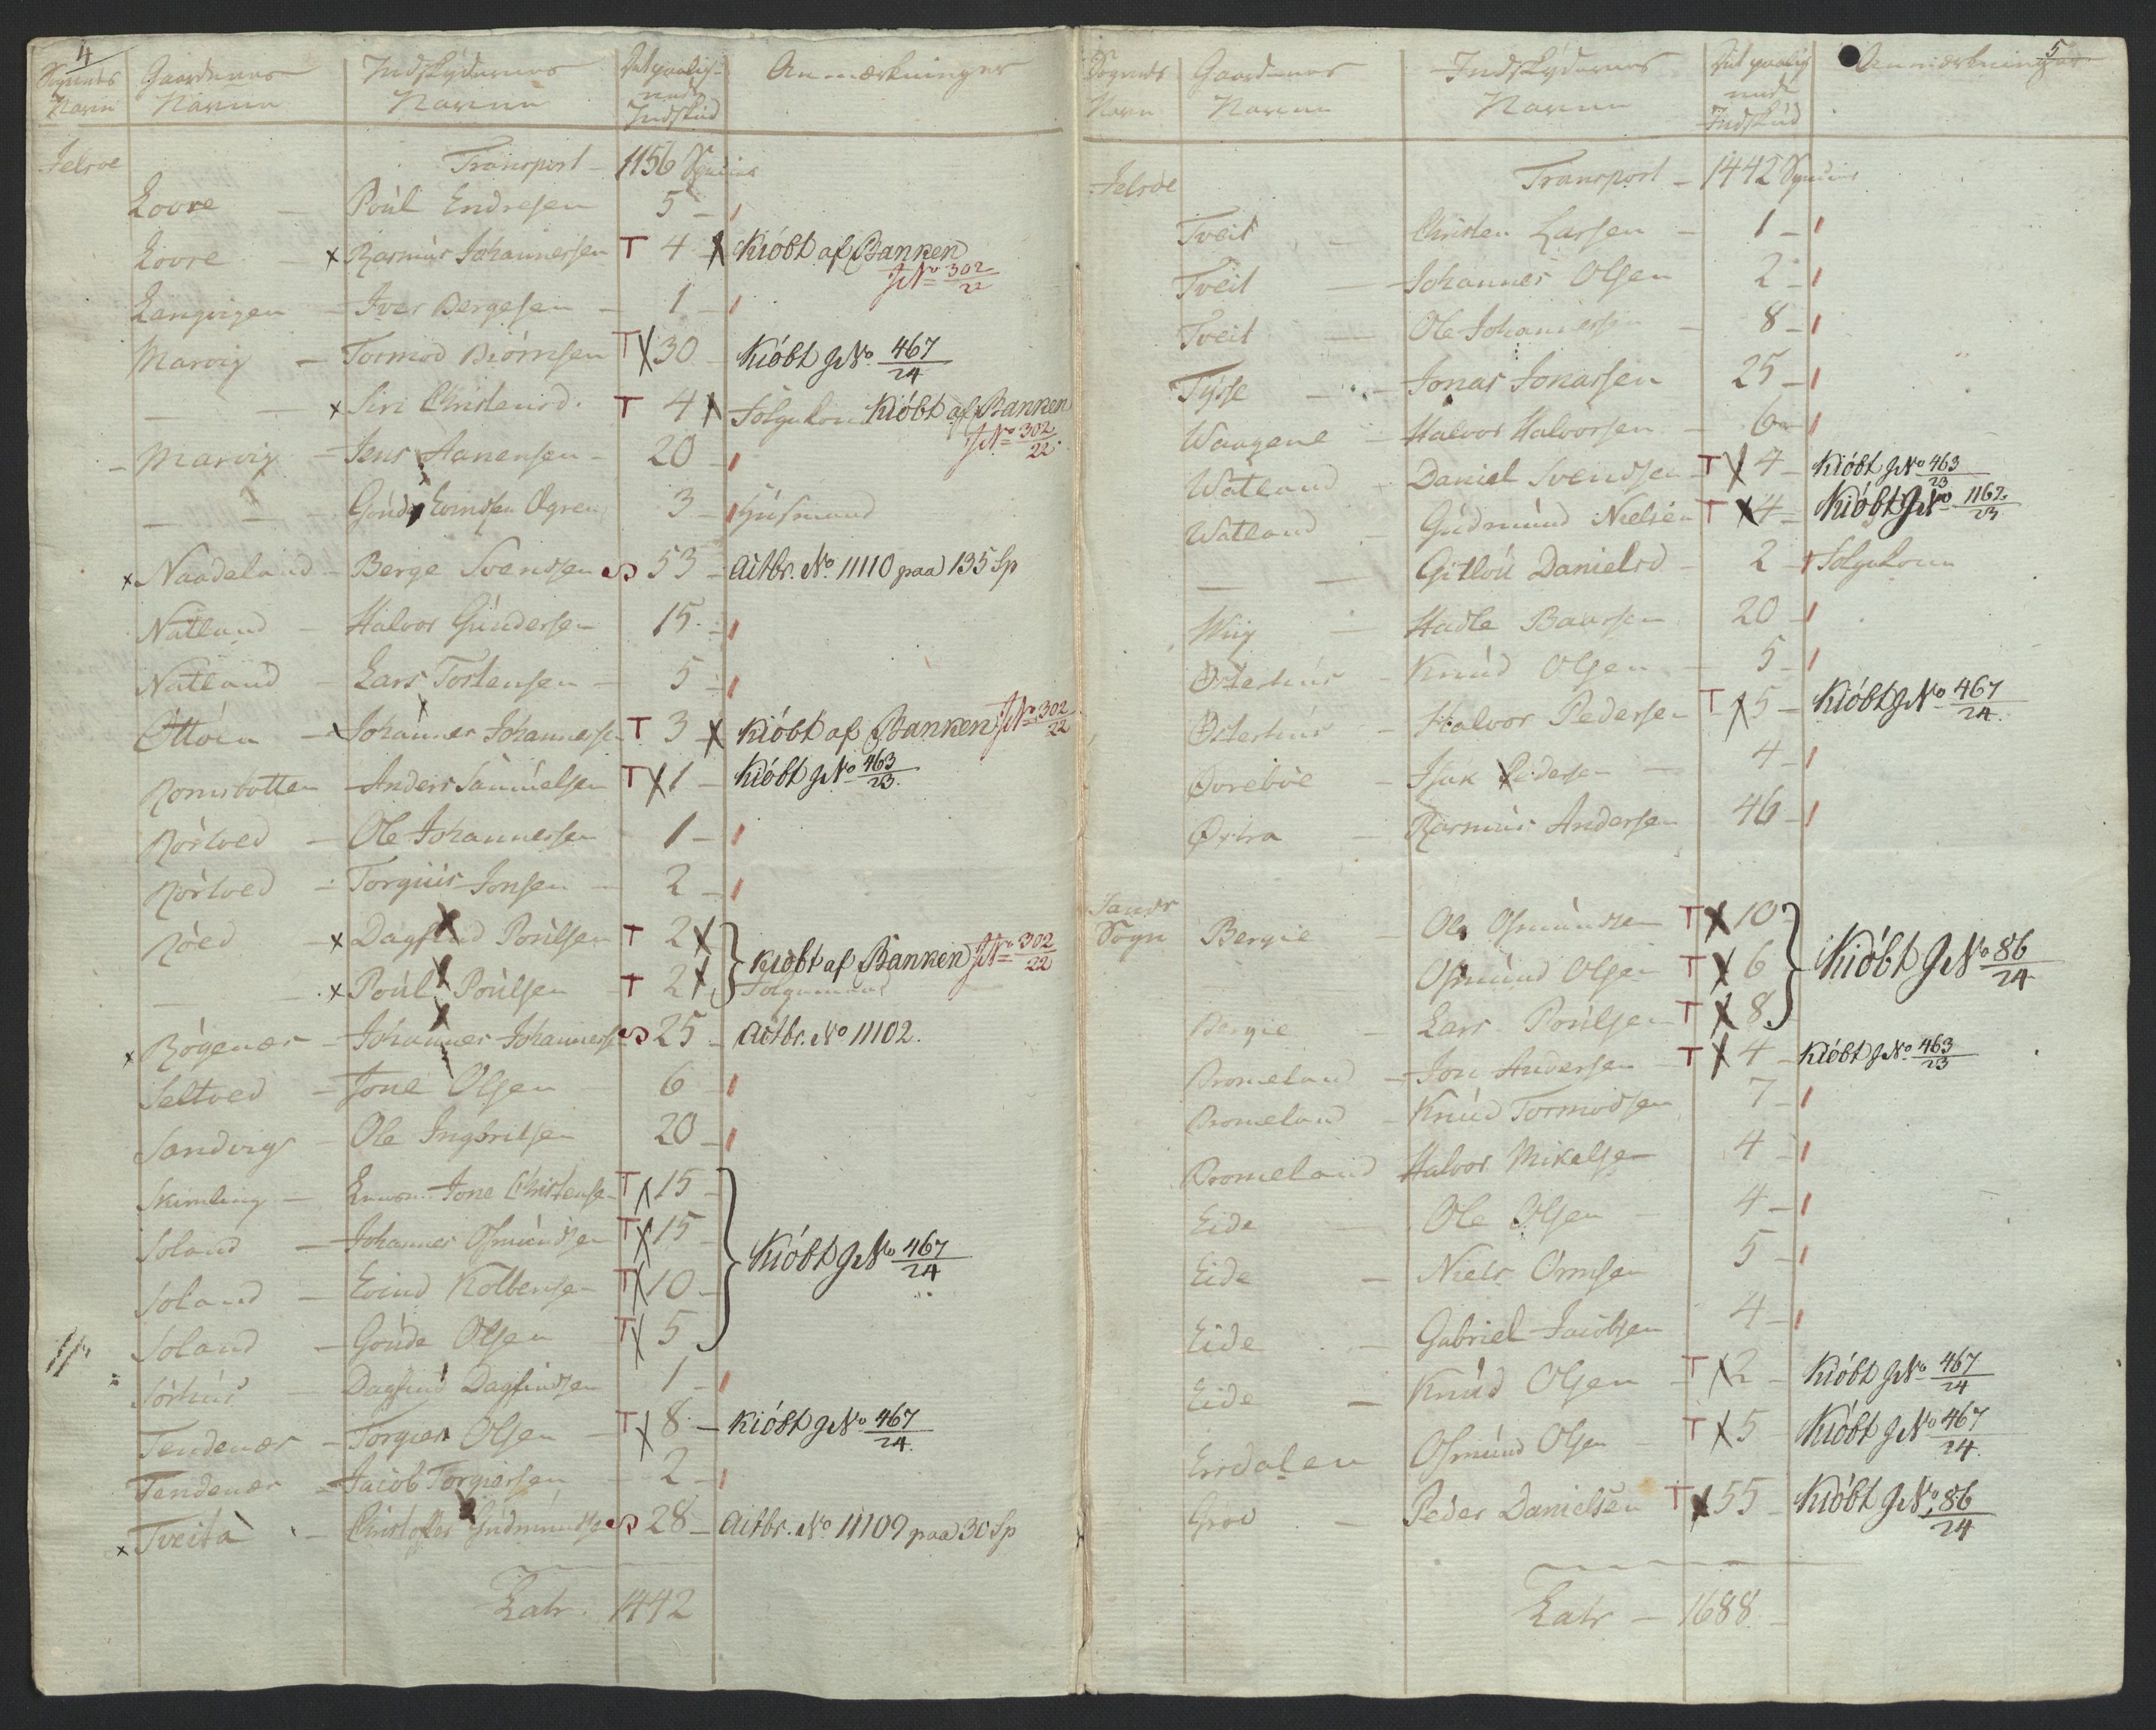 4
Sognets Navn | Gaardenes Navne | Indskydernes Navne | Det paalignede Indskud | Anmærkninger
Jelsøe | Transport - 1156 Species
Lovre - Poul Endresen 5 -
Lovre - x Rasmus Johannessen T 4 x Kiöbt af Banken
JNo 302/22
Langvigen - Iver Bergesen - 1 -
Marvig - Tormod Biörnsen T x 30 - Kiöbt JNo 467/24
— — x Siri Christensd. T 4 x Folgekone Kiöbt af Banken
JNo 302/22
- Marvig - Jens Aanensen - 20 -
— — Goude Evindsen Ogren 3 - Husmand
x Naadeland - Berge Svendsen S 53 - Actbr. No. 11110 paa 135 Sp
Natland - Halvor Gundersen 15 -
Natland - Lars Tostensen - 5 -
Ottöen - x Johannes Johannessen T 3 x Kiöbt af Banken JNo 302/22
Romsbotten - Anders Samuelsen T x 1 - Kiöbt JNo 463/23.
Rörtved - Ole Johannessen 1 -
Rörtved - Torgiuis Jonsen - 2 -
Röed - x Dagfind Poulsen T 2 x
Kiöbt af Banken JNo 302/22
— - x Poul Poulsen T 2 x Folgemand
x Rögenæs - Johannes Johannessen S 25 - Actbr. No 11102.
Seltved - Jone Olsen 6 -
Sandvigs - Ole Ingbritsen 20 -
Skimling - Jone Christensen T x 15 -
Soland - Johannes Osmundsen T x 15 -
Kiöbt JNo 467/24
Soland - Evind Kolbensen T x 10 -
Soland - Goude Olsen T x 5 -
Sörhus Dagfind Dagfindsen 1 -
Tendenær - Torgier Olsen - T x 8 - Kiöbt JNo 467/24.
Tendenær - Jacob Torgiersen - 2 -
x Tveita - Christoffer Gudmundsen S 28 - Actbr. No 11109 paa 30 Sp
Latr. 1442
5
Sognets Navn | Gaardenes Navne | Indskydernes Navne | Det paalignede Indskud | Anmærkninger
Jelsöe | Transport - 1442 Species
Tveit - Christen Larsen - 1 -
Tveit - Johannes Olsen 2 -
Tveit - Ole Johannessen - 8 -
Tysse - Jonas Jonassen 25 -
Waagene - Halvor Halvorsen - 6 -
Watland - Daniel Svendsen T x 4 - Kiöbt JNo 463/23
Watland - Gudmund Nielsen T x 4 - Kiöbt JNo 1162/23
— — Gitlou Danielsd - 2 - Folgekone
Wiig - Hadle Baarsen 20 -
Østerhus - Knud Olsen - 5 -
Østerhus - Halvor Pedersen T x 5 - Kiöbt JNo 467/24.
Øvreböe - Isak Pedersen - 4 -
Østra - Rasmus Andersen 46 -
Sands
Sogn Bergie - Ole Osmundsen T x 10 -
Osmund Olsen T x 6 Kiöbt JNo 86/24
Bergie - Lars Poulsen T x 8
Bromeland - Jon Andersen - T x 4 - Kiöbt JNo 463/23
Bromeland - Knud Tormodsen 7 -
Bromeland Halvor Mikelsen 4 -
Eide - Ole Olsen - 4 -
Eide - Niels Ormsen 5 -
Eide - Gabriel Jacobsen 4 -
Eide - Knud Olsen - T x 2 - Kiöbt JNo 467/24
Ersdalen Osmund Olsen - T x 5 Kiöbt JNo 467/24.
Grov - Peder Danielsen T x 55 - Kiöbt JNo 86/24
Latr - 1688 -